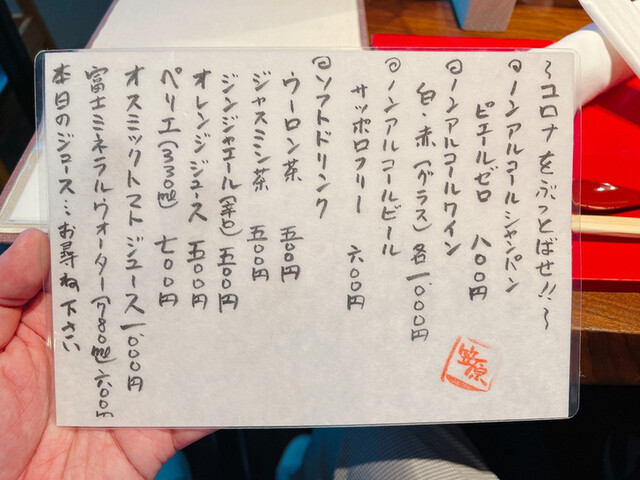 〜コロナをぶっとばせ!!〜
◎ノンアルコールシャンパン
ピエールゼロ 八〇〇円
◎ノンアルコールワイン
白・赤(グラス)各一、〇〇〇円
◎ノンアルコールビール
サッポロフリー 六〇〇円
◎ソフトドリンク
ウーロン茶 五〇〇円
ジャスミン茶 五〇〇円
ジンジャエール(辛口)五〇〇円
オレンジジュース 五〇〇円
ペリエ(330ml) 七〇〇円
オスミックトマトジュース 一、〇〇〇円
富士ミネラルウォーター(780ml)六〇〇円
本日のジュース…お尋ね下さい
笠原